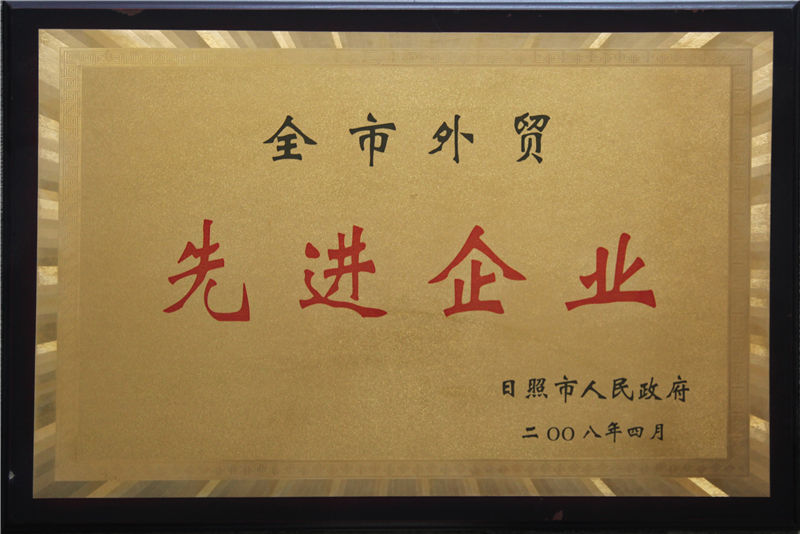 全市外贸
先进企业
日照市人民政府
二〇〇八年四月